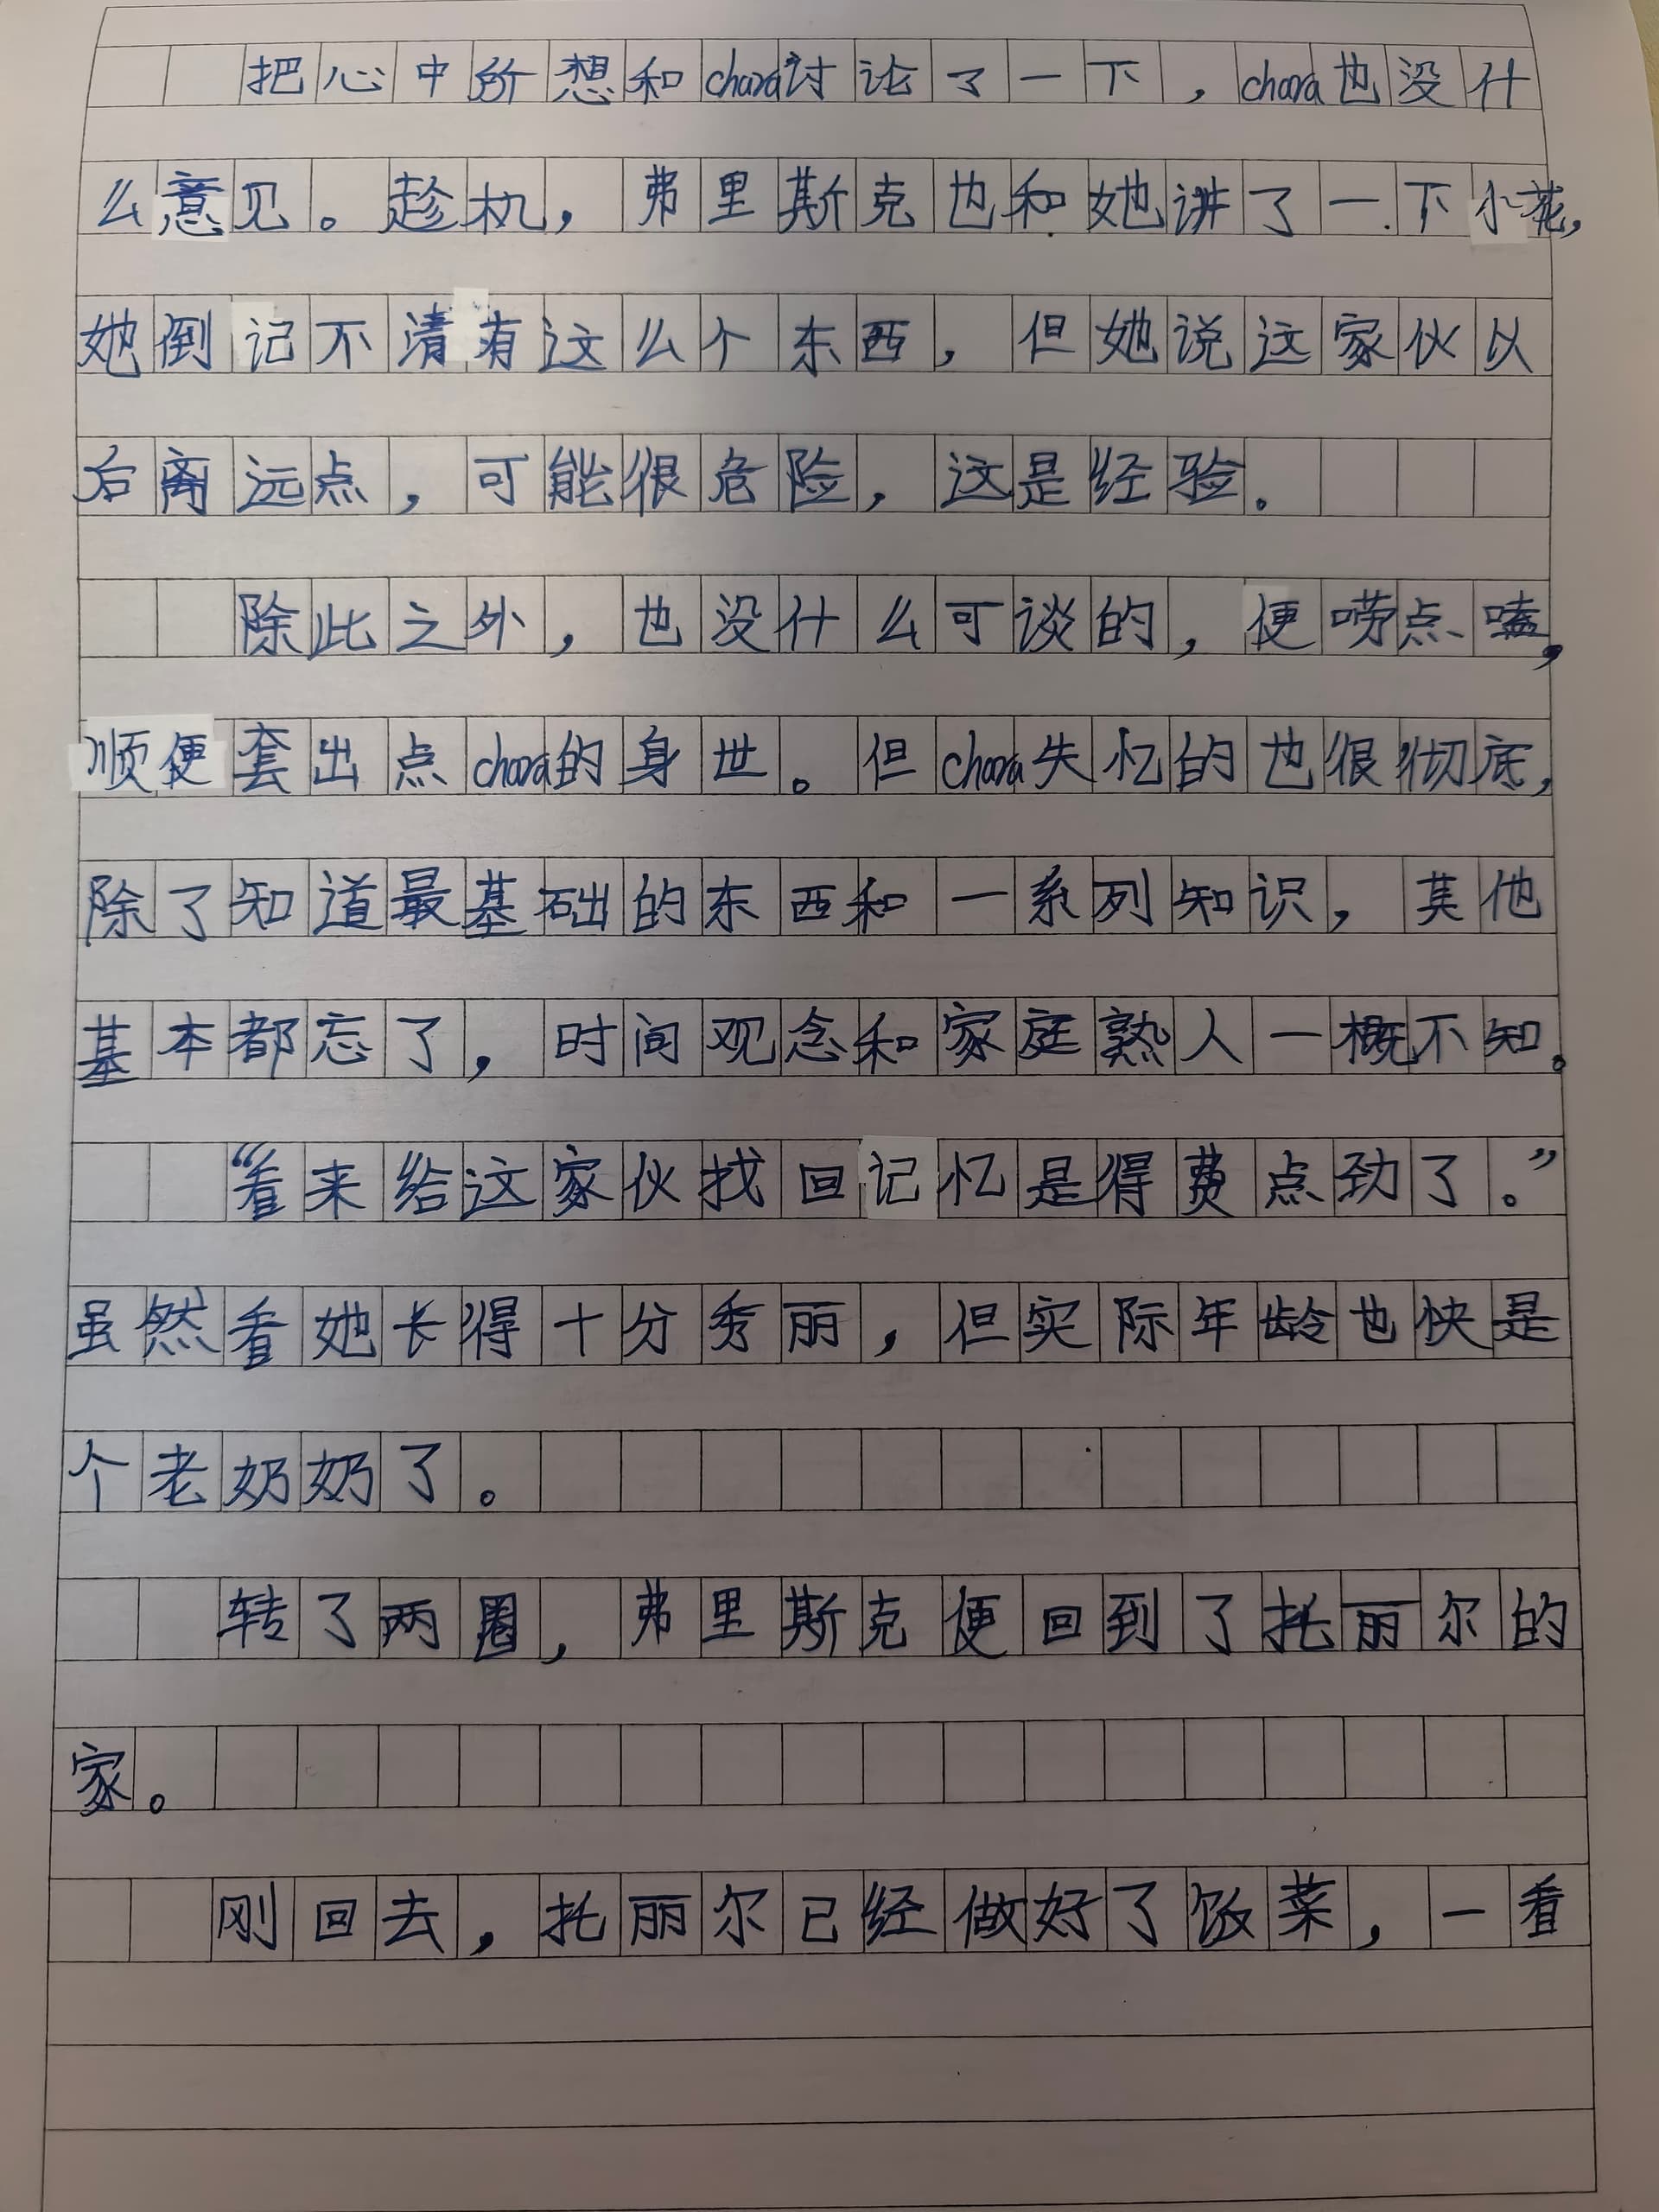 把心中所想和chara讨论了一下，chara也没什
么意见。趁机，弗里斯克也和她讲了一下小花，
她倒记不清有这么个东西，但她说这家伙以
后离远点，可能很危险，这是经验。
除此之外，也没什么可谈的，便唠点嗑，
顺便套出点chara的身世。但chara失忆的也很彻底，
除了知道最基础的东西和一系列知识，其他
基本都忘了，时间观念和家庭熟人一概不知。
“看来给这家伙找回记忆是得费点劲了。”
虽然看她长得十分秀丽，但实际年龄也快是
个老奶奶了。
转了两圈，弗里斯克便回到了托丽尔的
家。
刚回去，托丽尔已经做好了饭菜，一看